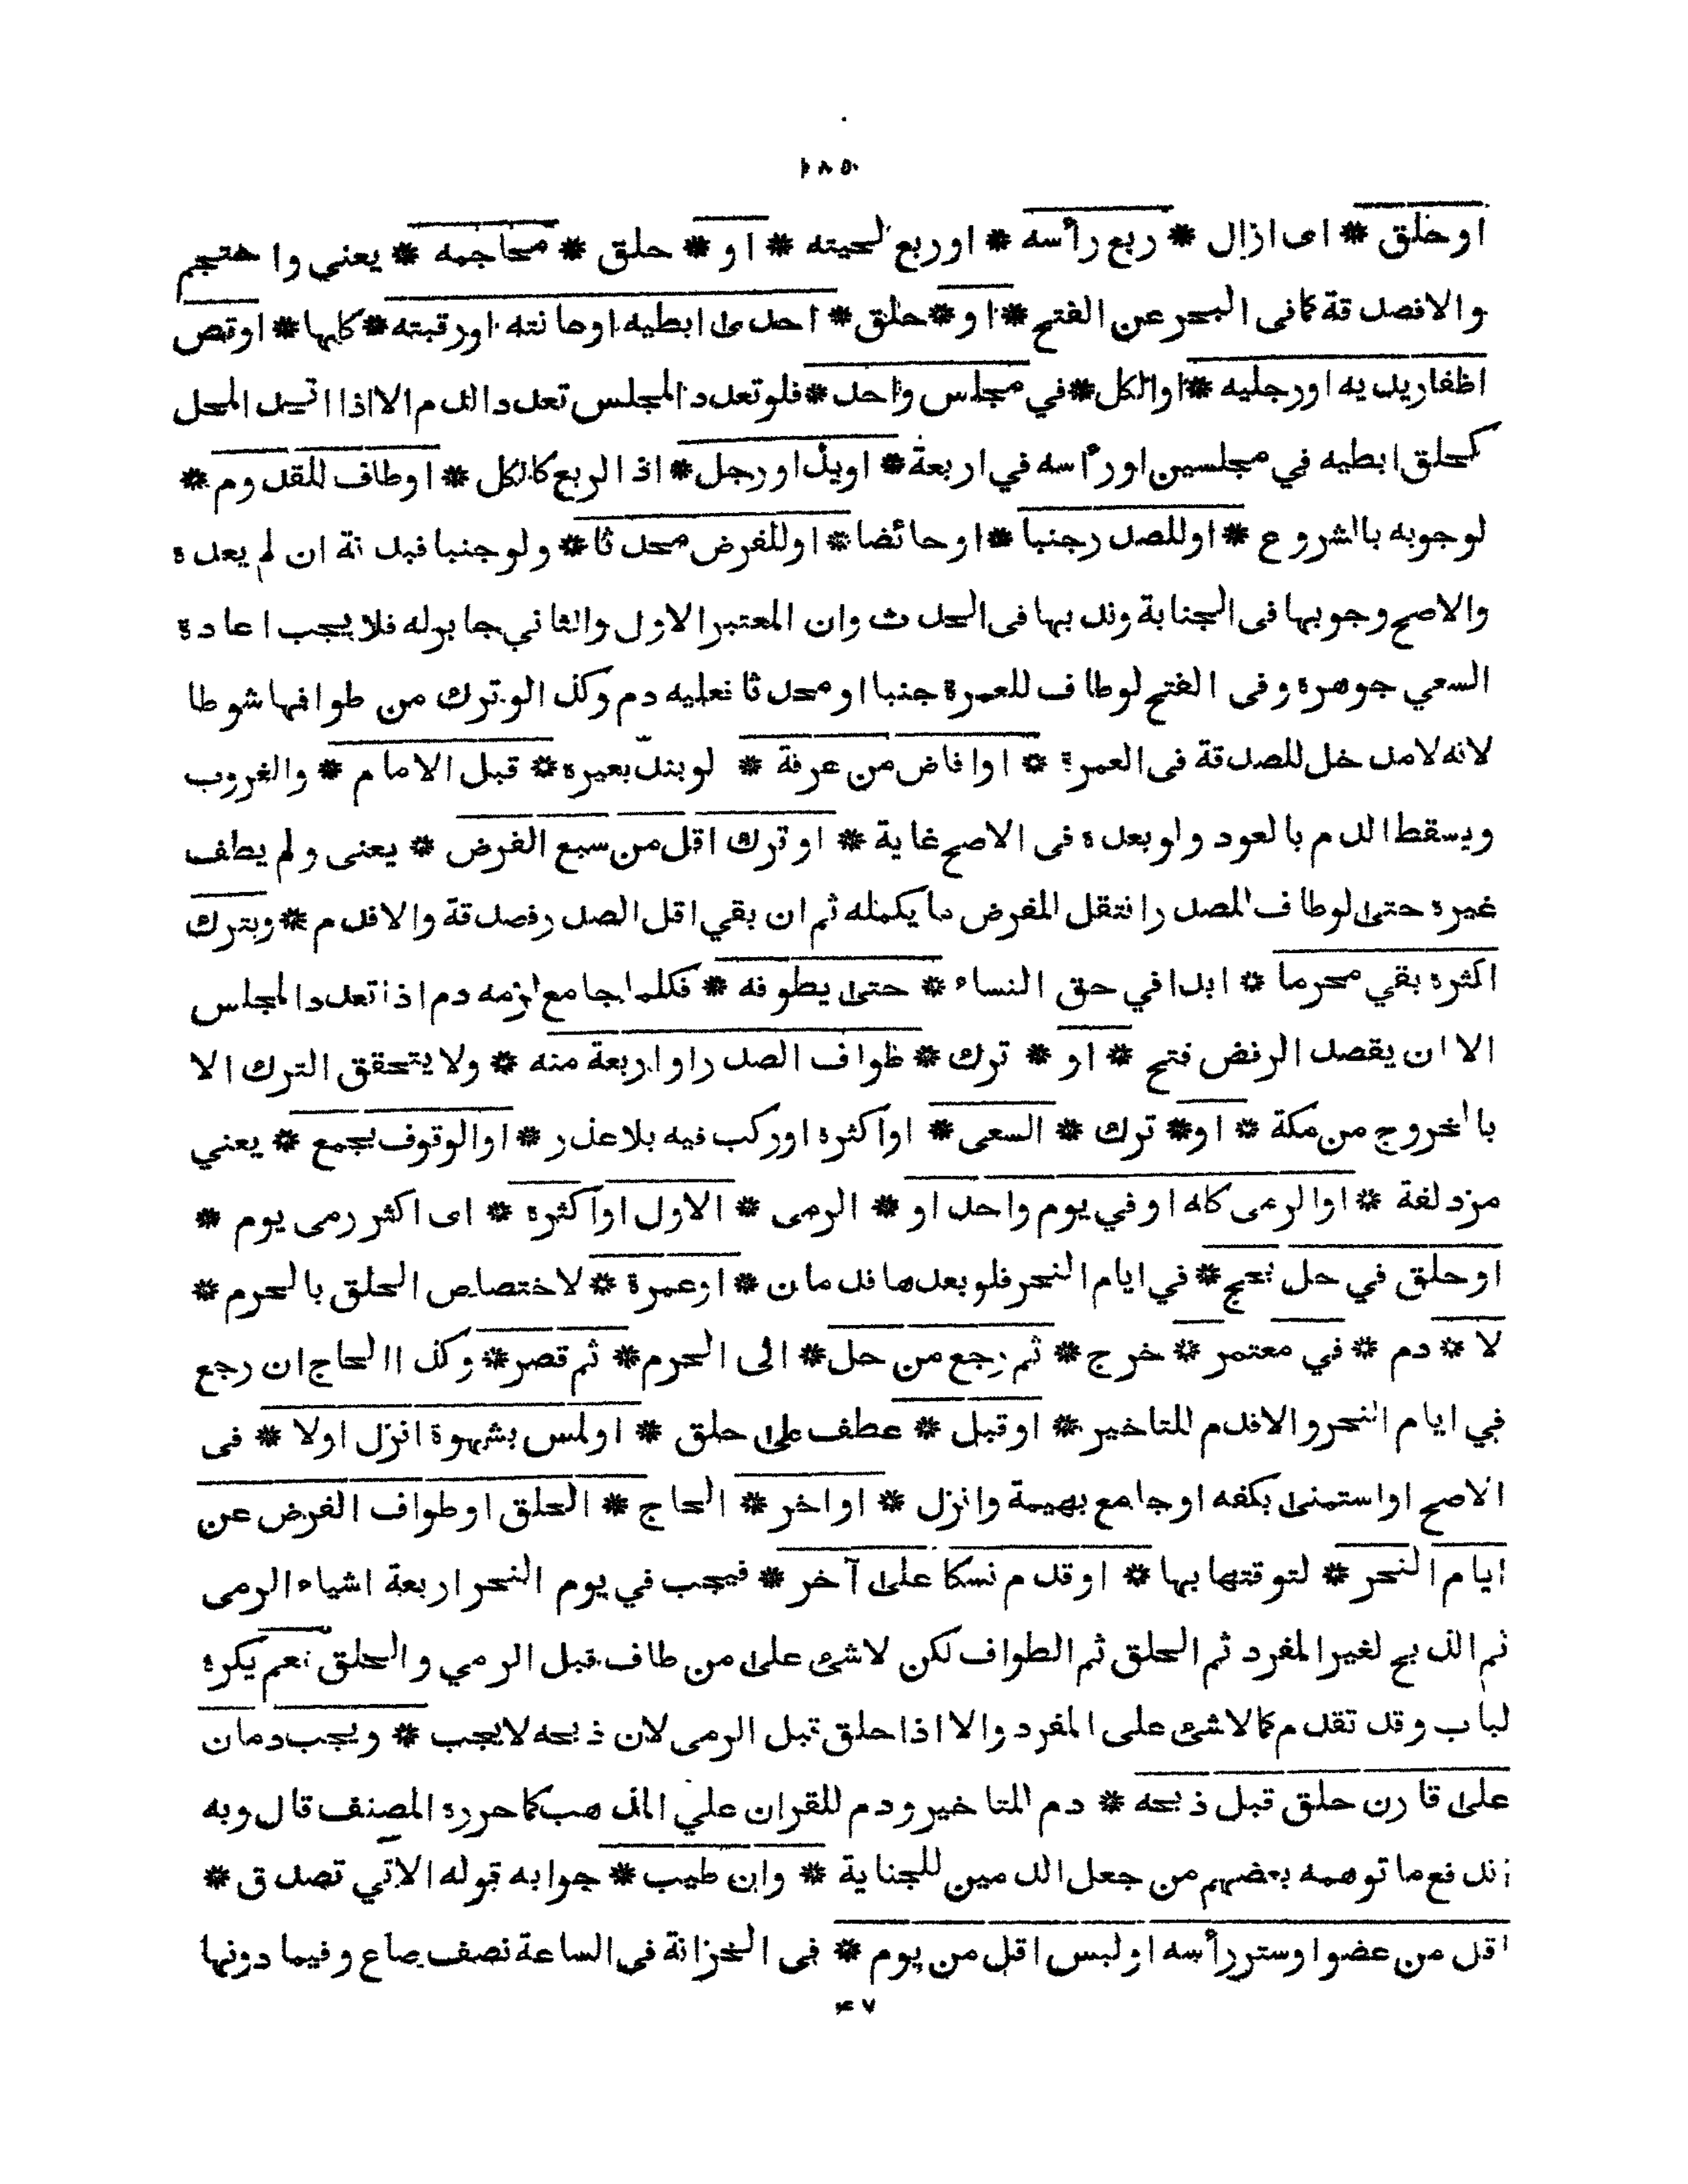 ١٨٥
او حلق * اى ازال * ربع رأسه * او ربع لحيته * او * حلق * محاجمه * يعني واحتجم
والا فصدقة كما فى البحر عن الفتح * او * حلق * احدى ابطيه او عانته او رقبته * كلها * او قص
اظفار يديه او رجليه * او الكل * في مجلس واحد * فلو تعدد المجلس تعدد الدم الا اذا اتحد المحل
كحلق ابطيه في مجلسين او رأسه في اربعة * او يد او رجل * اذ الربع كالكل * او طاف للقدوم *
لوجوبه بالشروع * او للصدر جنبا * او حائضا * او للفرض محدثا * ولو جنبا فبدنة ان لم يعده
والاصح وجوبها فى الجنابة وندبها فى الحدث وان المعتبر الاول والثاني جابر له فلا يجب اعادة
السعي جوهرة وفى الفتح لو طاف للعمرة جنبا او محدثا فعليه دم وكذا لو ترك من طوافها شوطا
لانه لا مدخل للصدقة فى العمرة * او افاض من عرفة * لو بندّ بعيره * قبل الامام * والغروب
ويسقط الدم بالعود ولو بعده فى الاصح غاية * او ترك اقل من سبع الفرض * يعنى ولم يطف
غيره حتى لو طاف للصدر انتقل للفرض ما يكمله ثم ان بقي اقل الصدر فصدقة والا فدم * وبترك
اكثره بقي محرما * ابدا في حق النساء * حتى يطوفه * فكلما جامع لزمه دم اذا تعدد المجلس
الا ان يقصد الرفض فتح * او * ترك * طواف الصدر او اربعة منه * ولا يتحقق الترك الا
بالخروج من مكة * او * ترك * السعى * او اكثره او ركب فيه بلا عذر * او الوقوف بجمع * يعني
مزدلفة * او الرمى كله او في يوم واحد او * الرمى * الاول او اكثره * اى اكثر رمى يوم *
او حلق في حل بحج * في ايام النحر فلو بعدها فدمان * او عمرة * لاختصاص الحلق بالحرم *
لا * دم * في معتمر * خرج * ثم رجع من حل * الى الحرم * ثم قصر * وكذا الحاج ان رجع
في ايام النحر والا فدم للتاخير * او قبل * عطف على حلق * او لمس بشهوة انزل او لا * فى
الاصح او استمنى بكفه او جامع بهيمة وانزل * او اخر * الحاج * الحلق او طواف الفرض عن
ايام النحر * لتوقتها بها * او قدم نسكا على آخر * فيجب في يوم النحر اربعة اشياء الرمى
ثم الذبح لغير المفرد ثم الحلق ثم الطواف لكن لا شئ على من طاف قبل الرمي والحلق نعم يكره
لباب وقد تقدم كما لا شئ على المفرد والا اذا حلق قبل الرمى لان ذبحه لا يجب * ويجب دمان
على قارن حلق قبل ذبحه * دم للتاخير ودم للقران علي المذهب كما حرره المصنف قال وبه
اندفع ما توهمه بعضهم من جعل الدمين للجناية * وان طيب * جوابه قوله الآتي تصدق *
اقل من عضو او ستر رأسه او لبس اقل من يوم * فى الخزانة فى الساعة نصف صاع وفيما دونها
٤٧